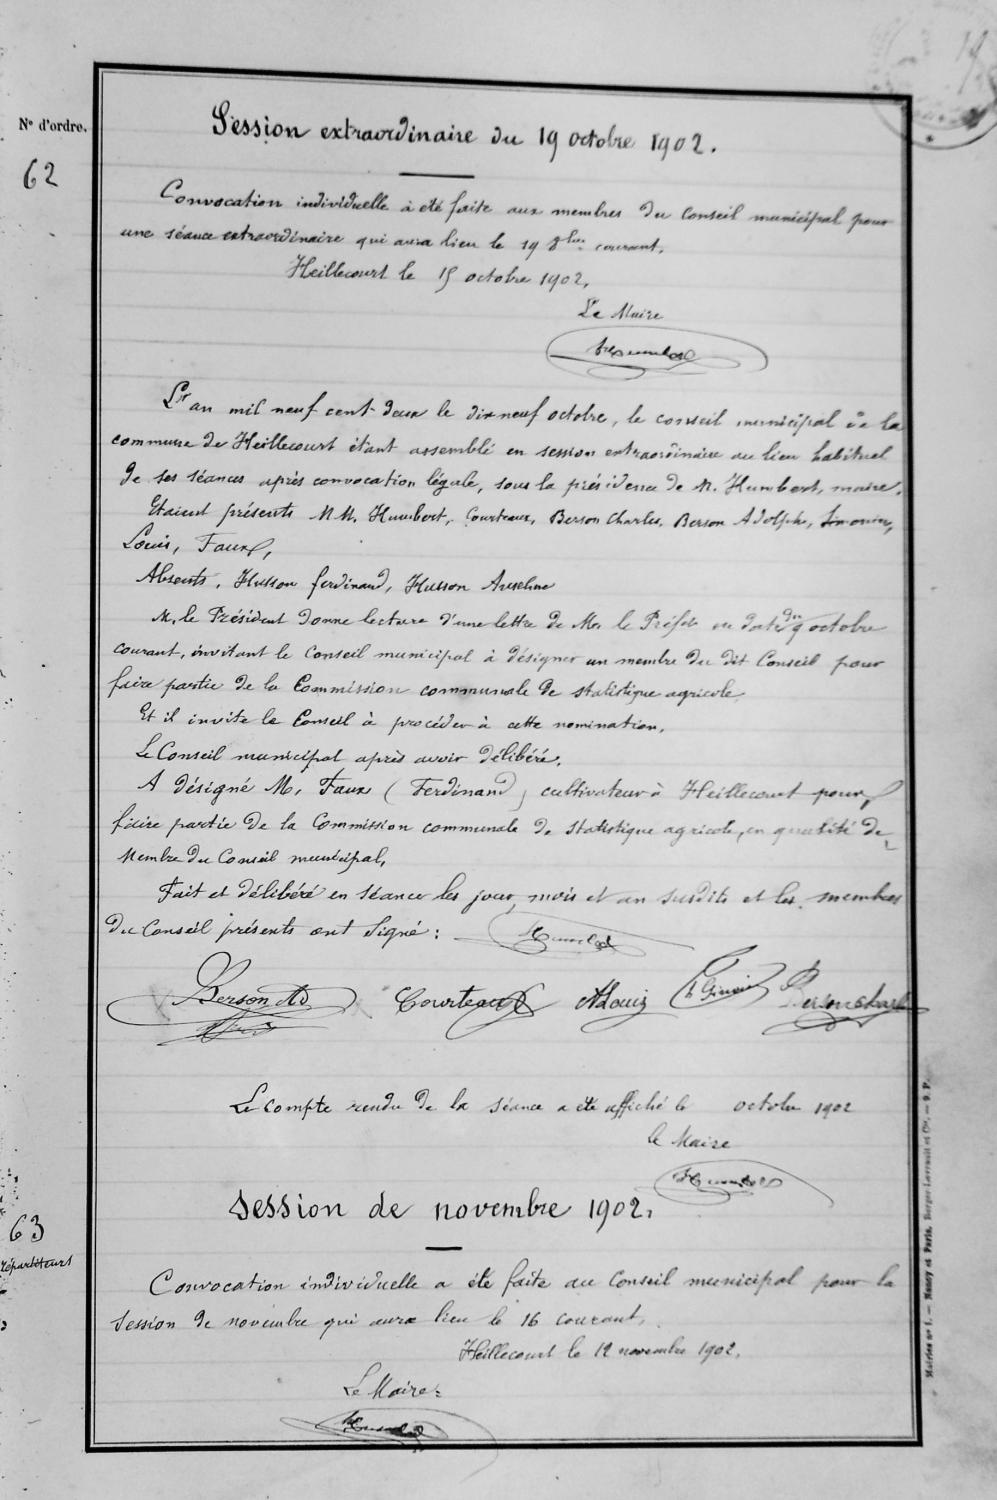 N° d'ordre.
62
Session extraordinaire du 19 octobre 1902.
Convocation individuelle à été faite aux membres du Conseil municipal pour
une séance extraordinaire qui aura lieu le 19 8bre courant.
Heillecourt le 15 octobre 1902.
Le Maire
Humbert
L'an mil neuf cent deux le dix neuf octobre, le conseil municipal de la
commune de Heillecourt étant assemblé en session extraordinaire au lieu habituel
de ses séances après convocation légale, sous la présidence de M. Humbert, maire.
Etaient présents MM. Humbert, Courteaux, Berson Charles, Berson Adolphe, Simonin,
Louis, Faux,
Absents, Husson ferdinand, Husson Anselme
M. le Président donne lecture d'une lettre de Mr. le Préfet en date du 9 octobre
courant, invitant le Conseil municipal à désigner un membre du dit Conseil pour
faire partie de la Commission communale de statistique agricole
Et il invite le Conseil à procéder à cette nomination.
Le Conseil municipal après avoir délibéré.
A désigné M. Faux (Ferdinand) cultivateur à Heillecourt pour
faire partie de la Commission communale de Statistique agricole, en qualité de
Membre du Conseil municipal.
Fait et délibéré en séance les jour, mois et an susdits et les membres
du Conseil présents ont signé : Humbert
Berson Ad Courteaux A Louis Berson Charl
Le Compte rendu de la séance a été affiché le octobre 1902
le Maire
Humbert
63
répartiteurs
Session de novembre 1902.
Convocation individuelle a été faite au Conseil municipal pour la
Session de novembre qui aura lieu le 16 courant.
Heillecourt le 12 novembre 1902.
Le Maire
Humbert
Mairies n° 1. — Nancy et Paris, Berger-Levrault et Cie. — 9. P.